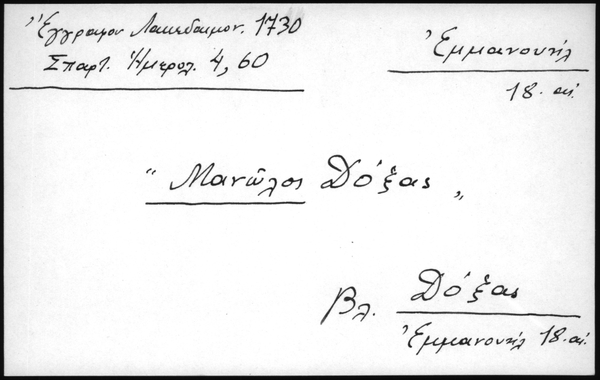 Ἔγγραφον Λακεδαιμον. 1730
Σπαρτ. Ἡμερολ. 4, 60
Ἐμμανουὴλ
18. αἰ.
"Μανῶλος Δόξας"
βλ. Δόξας
Ἐμμανουὴλ 18. αἰ.